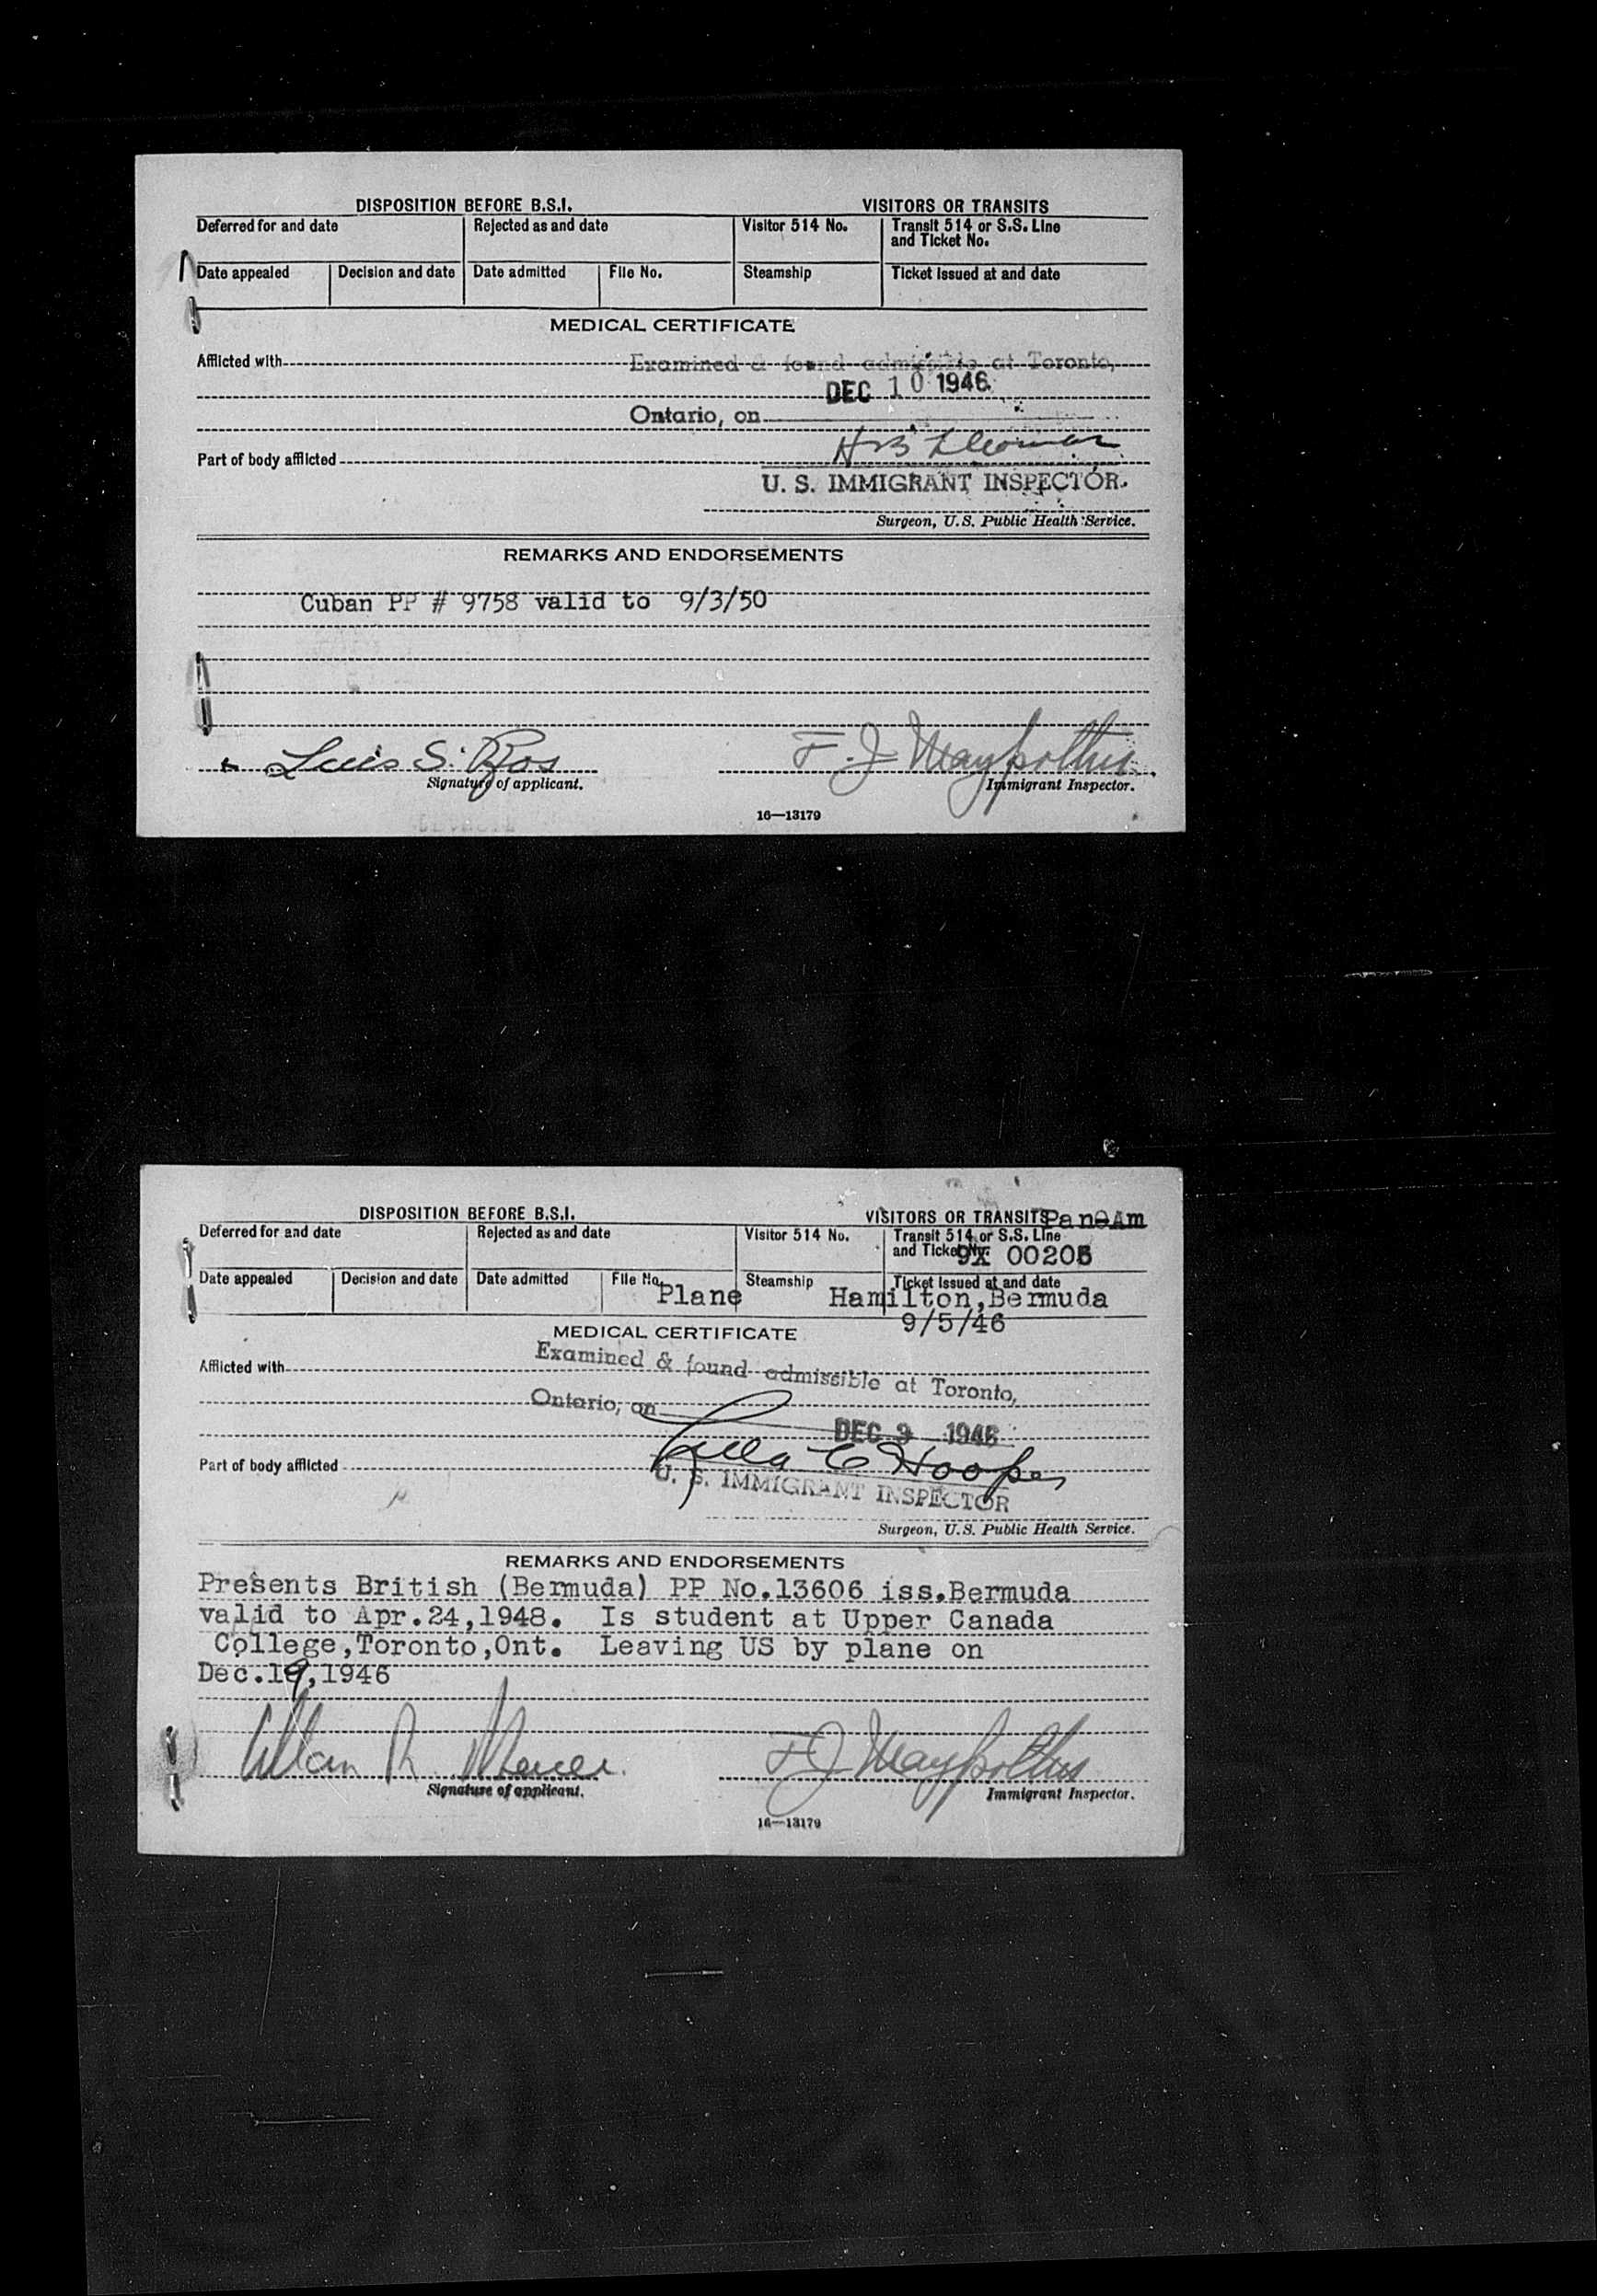 DISPOSITION BEFORE B.S.I. VISITORS OR TRANSITS
Deferred for and date Rejected as and date Visitor 514 No. Transit 514 or S.S. Line
and Ticket No.
Date appealed Decision and date Date admitted File No. Steamship Ticket issued at and date
MEDICAL CERTIFICATE
Afflicted with Examined & found admissible at Toronto,
DEC 10 1946
Ontario, on
Part of body afflicted
U. S. IMMIGRANT INSPECTOR.
Surgeon, U.S. Public Health Service.
REMARKS AND ENDORSEMENTS
Cuban PP # 9758 valid to 9/3/50
Luis S. Ros F. J.
Signature of applicant. Immigrant Inspector.
16—13179
DISPOSITION BEFORE B.S.I. VISITORS OR TRANSITS Pan-Am
Deferred for and date Rejected as and date Visitor 514 No. Transit 514 or S.S. Line
and Ticket No. 9X 00206
Date appealed Decision and date Date admitted File No. Steamship Ticket issued at and date
Plane Hamilton, Bermuda
9/5/46
MEDICAL CERTIFICATE
Examined & found admissible at Toronto,
Afflicted with
Ontario, on
DEC 9 1946
C Hooper
Part of body afflicted
U. S. IMMIGRANT INSPECTOR
Surgeon, U.S. Public Health Service.
REMARKS AND ENDORSEMENTS
Presents British (Bermuda) PP No.13606 iss.Bermuda
valid to Apr.24,1948. Is student at Upper Canada
College,Toronto,Ont. Leaving US by plane on
Dec.19,1946
Allan R. F. J.
Signature of applicant. Immigrant Inspector.
16—13179